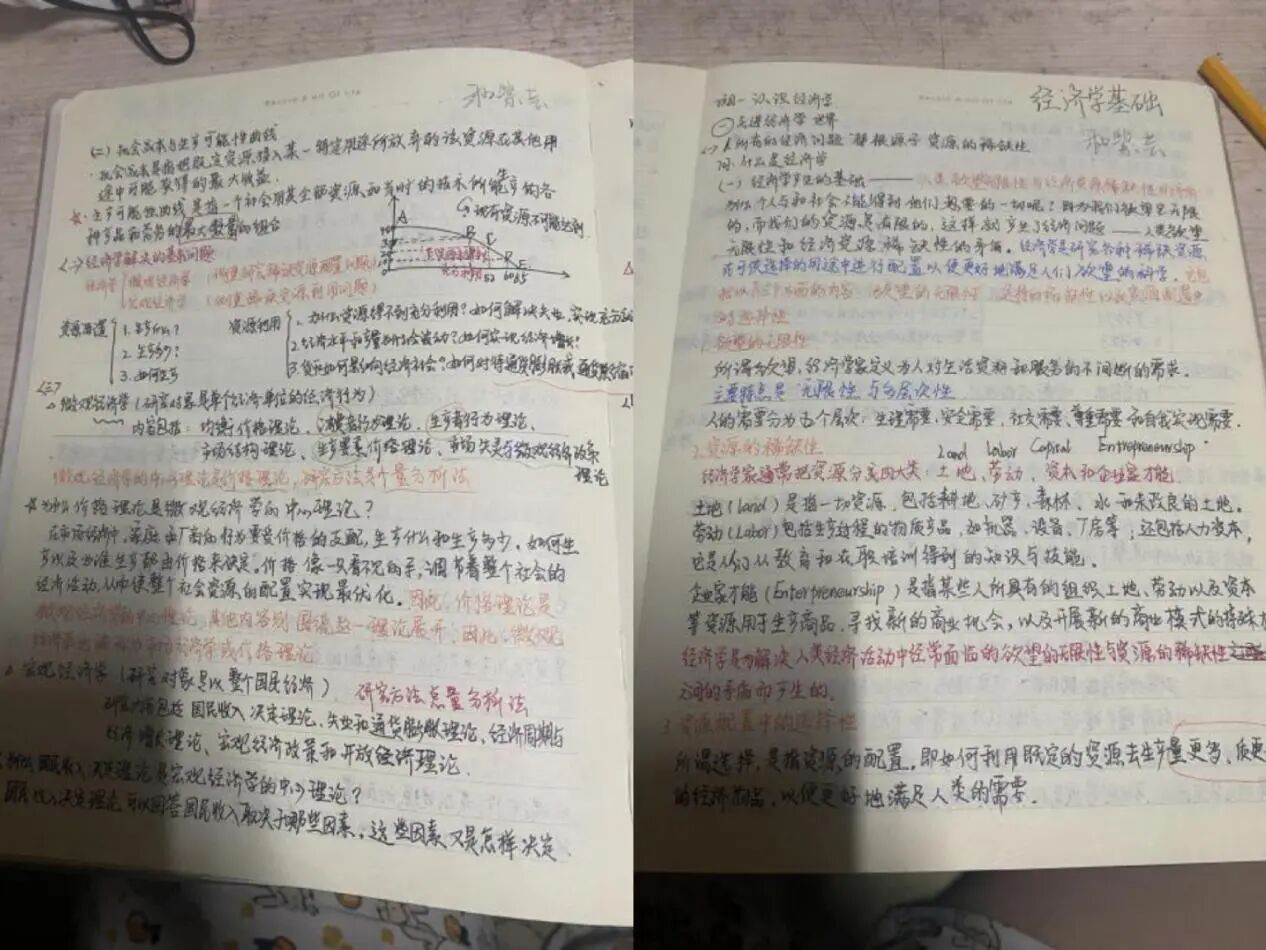 (二)机会成本与生产可能性曲线
机会成本是指把既定资源投入某一特定用途所放弃的该资源在其他用
途中可能获得的最大收益.
生产可能性曲线是指一个社会用其全部资源和当时的技术所能生产的各
种产品和劳务的最大数量的组合
G现有资源不可能达到
A
B
<二>经济学解决的基本问题
经济学 微观经济学 (侧重研究稀缺资源配置问题)
宏观经济学 (侧重研究资源利用问题)
资源配置
1. 生产什么?
2. 生产多少?
3. 如何生产
资源利用
1. 为什么资源得不到充分利用?如何解决失业,实现充分
2. 经济水平和产量为什么会波动?如何实现经济增长?
3. 货币如何影响经济社会?如何对待通货膨胀或通货紧缩
<三>
微观经济学(研究对象是单个经济单位的经济行为)
内容包括:均衡价格理论、消费者行为理论、生产者行为理论、
市场结构理论、生产要素价格理论、市场失灵与微观经济政策
理论
微观经济学的中心理论是价格理论,研究方法是个量分析法
为什么价格理论是微观经济学的中心理论?
在市场经济中,家庭和厂商的行为要受价格的支配,生产什么和生产多少、如何生
产以及为谁生产都由价格来决定。价格像一只看不见的手,调节着整个社会的
经济活动,从而使整个社会资源的配置实现最优化。因此,价格理论是
微观经济学的中心理论,其他内容则围绕这一理论展开,因此,微观
经济学也被称为市场经济学或价格理论
宏观经济学(研究对象是以整个国民经济) 研究方法总量分析法
研究内容包括国民收入决定理论、失业和通货膨胀理论、经济周期与
经济增长理论、宏观经济政策和开放经济理论.
为什么国民收入决定理论是宏观经济学的中心理论?
国民收入决定理论可以回答国民收入取决于哪些因素,这些因素又是怎样决定
项目一 认识经济学
经济学基础
走进经济学世界
所有的经济问题都根源于资源的稀缺性
问:什么是经济学
(一)经济学产生的基础——人类欲望无限性与经济资源稀缺性的矛盾
为什么个人与和社会不能得到他们想要的一切呢?因为我们欲望是无限
的,而我们的资源是有限的,这样就产生了经济问题——人类欲望
无限性和经济资源稀缺性的矛盾。经济学是研究各种稀缺资源
在可供选择的用途中进行配置以便更好地满足人们欲望的科学。
的选择性
1.欲望的无限性
所谓的欲望,经济学家定义为人对生活资料和服务的不间断的需求.
主要特点是 无限性与多层次性
人的需要分为五个层次:生理需要、安全需要、社交需要、尊重需要和自我实现需要.
2.资源的稀缺性 Land Labor Capital Entrepreneurship
经济学家通常把资源分成四大类 土地、劳动、资本和企业家才能
土地(land)是指一切资源,包括耕地、矿产、森林、水和未改良的土地。
劳动(Labor)包括生产过程的物质产品,如机器、设备、厂房等;还包括人力资本,
它是人们从教育和在职培训得到的知识与技能。
企业家才能(Enterpreneurship)是指某些人所具有的组织土地、劳动以及资本
等资源用于生产商品、寻找新的商业机会,以及开展新的商业模式的特殊
经济学是为解决人类经济活动中经常面临的欲望的无限性与资源的稀缺性
之间的矛盾而产生的.
3.资源配置中的选择性
所谓选择,是指资源的配置,即如何利用既定的资源去生产量更多、质更
的经济物品,以便更好地满足人类的需要.